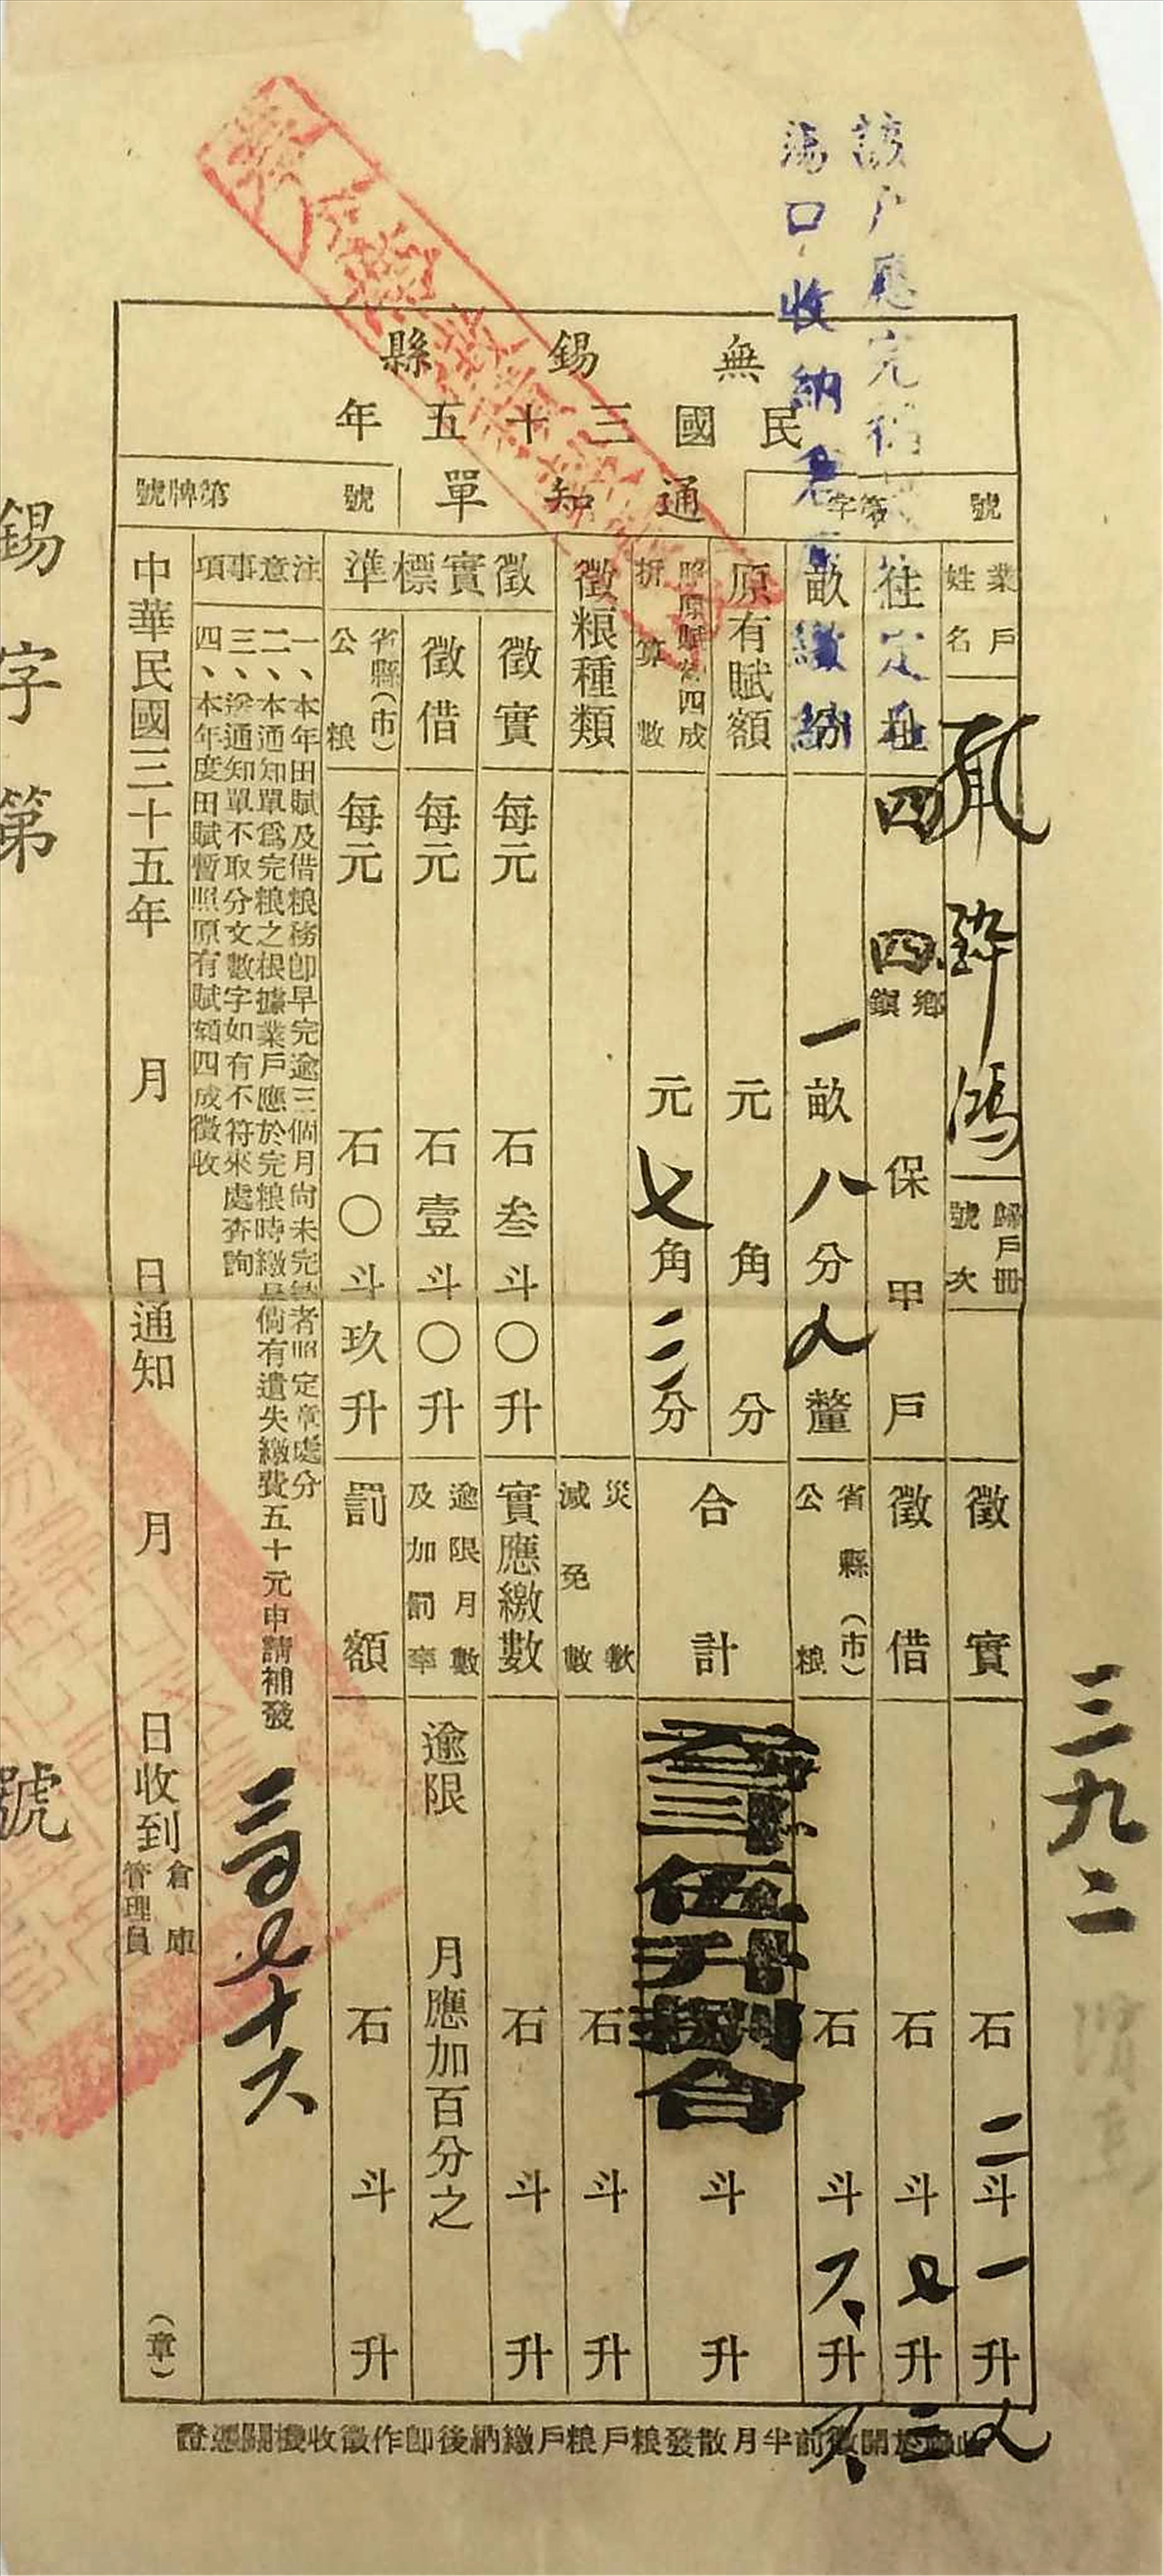 該戶應完
蕩口收納倉
無錫縣
民國三十五年
通知單
字第 號
號牌第 號
業戶姓名
鴻
歸戶冊號次
住址
四
四
鄉鎮 保 甲 戶
畝分
一畝八分 釐
原有賦額
元 角 分
照原賦額四成折算數
元七角二分
徵粮種類
徵實標準
徵實 每元 石叁斗〇升
徵借 每元 石壹斗〇升
省縣(市)公粮 每元 石〇斗玖升
徵實 石二斗一升
徵借 石 斗 升
省縣(市)公粮 石 斗六升
合計
叁斗伍升捌合
斗 升
災歉減免數 石 斗 升
實應繳數 石 斗 升
逾限月數及加罰率 逾限 月應加百分之
罰額 石 斗 升
注意事項
一、本年田賦及借粮務卽早完逾三個月尙未完納者照定章處分
二、本通知單爲完粮之根據業戶應於完粮時繳呈倘有遺失繳費五十元申請補發
三、塗通知單不取分文數字如有不符來處查詢
四、本年度田賦暫照原有賦額四成徵收
中華民國三十五年 月 日通知 月 日收到 倉庫管理員 (章)
於開徵前半月散發粮戶粮戶繳納後卽作徵收機關憑證
三九二
錫字第 號